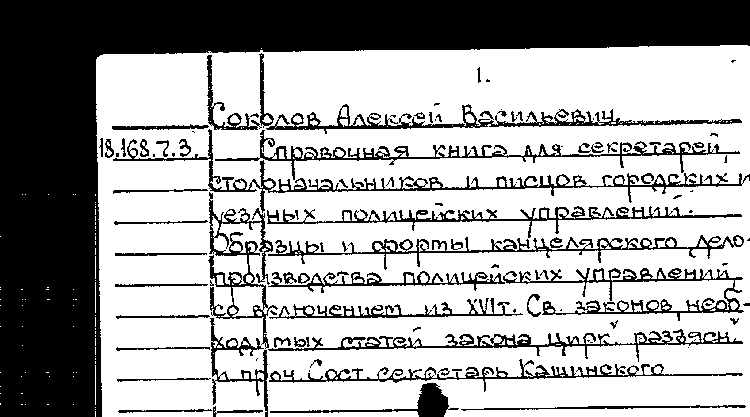 1.
Соколов, Алексей Васильевич.
18.168.7.3. Справочная книга для секретарей,
столоначальников и писцов городских и
уездных полицейских управлений.
Образцы и формы канцелярского дело-
производства полицейских управлений
со включением из XVI т. Св. законов, необ-
ходимых статей закона, цирк. разъясн.
и проч. Сост. секретарь Кашинского